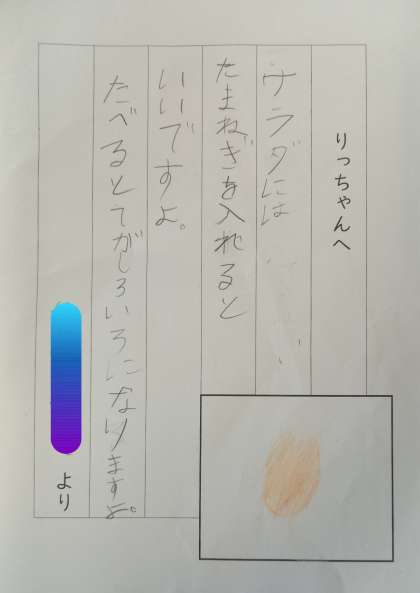 りっちゃんへ
サラダには
たまねぎを入れると
いいですよ。
たべるとてがしろいろになりますよ。
より